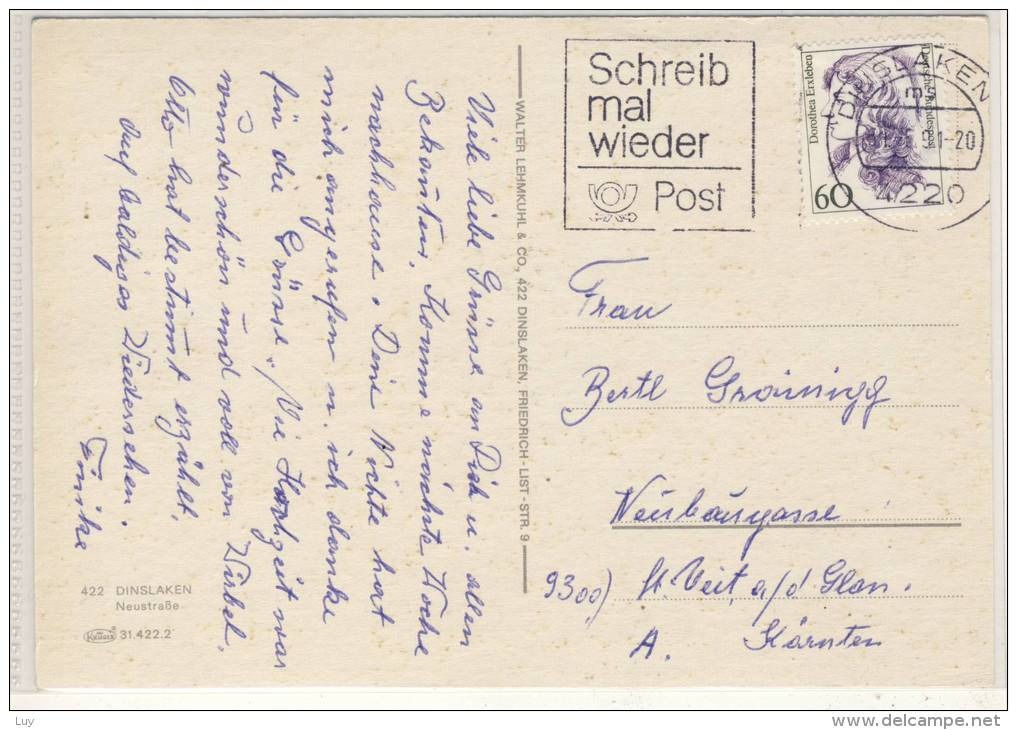 Viele liebe Grüsse an Dich u. allen
Bekannten. Komme nächste Woche
nachhause. Deine Nichte hat
mich angerufen u. ich danke
für die Grüsse. Die Hochzeit war
wunderschön und voll von Wirbel.
Otto hat bestimmt erzählt.
Auf baldiges Wiedersehen.
422 DINSLAKEN
Neustraße
KRÜGER
31.422.2
WALTER LEHMKUHL & CO., 422 DINSLAKEN, FRIEDRICH-LIST-STR. 9
Schreib
mal
wieder
Post
Dorothea Erxleben
Deutsche Bundespost
60
DINSLAKEN
-20
4220
Frau
Bertl Grainigg
Neubaugasse
9300) St. Veit, a/d Glan.
A. Kärnten
Luy
www.delcampe.net